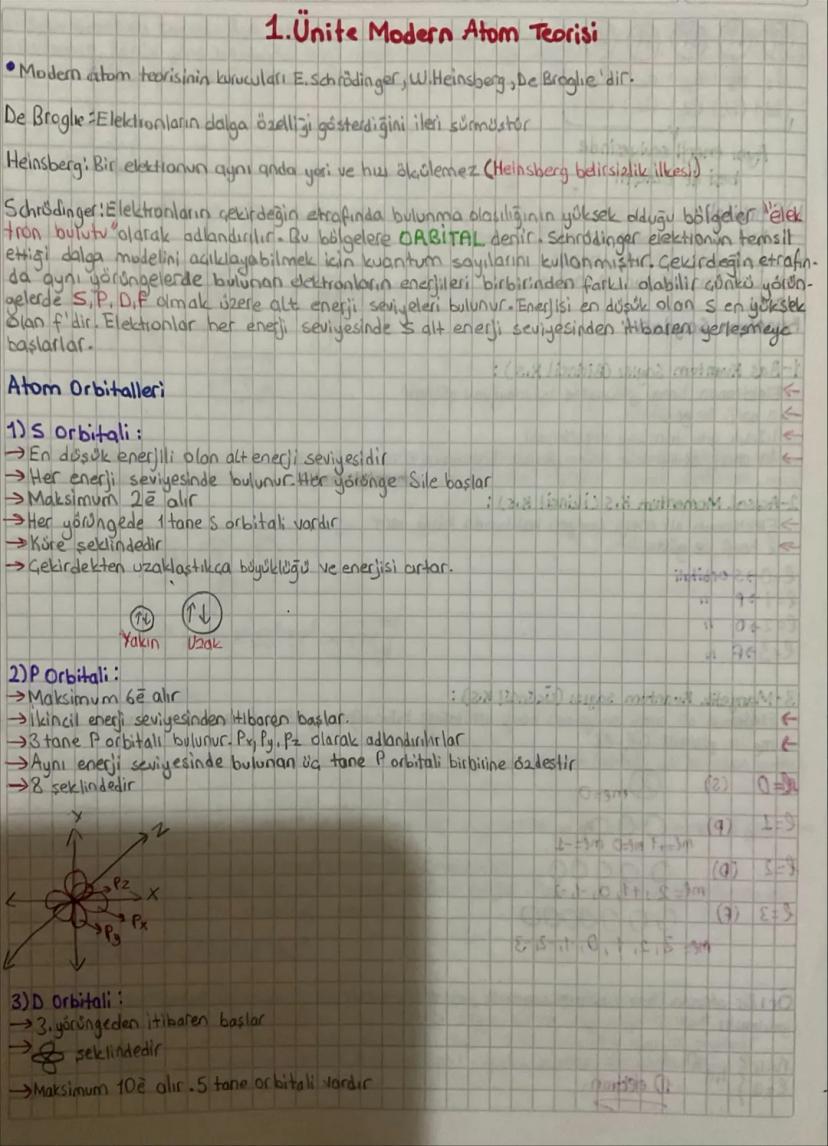 1.Ünite Modern Atom Teorisi
• Modern atom teorisinin kurucuları E.Schrödinger, W.Heinsberg, De Broglie'dir.
De Broglie:Elektronların dalga özelliği gösterdiğini ileri sürmüştür
Heinsberg: Bir elektronun aynı anda yeri ve hızı ölçülemez (Heinsberg belirsizlik ilkesi)
Schrödinger:Elektronların çekirdeğin etrafında bulunma olasılığının yüksek olduğu bölgeler "elek
tron bulutu" olarak adlandırılır. Bu bölgelere ORBİTAL denir. Schrödinger elektronun temsil
ettiği dalga modelini açıklayabilmek için kuantum sayılarını kullanmıştır. Çekirdeğin etrafın-
da aynı yörüngelerde bulunan elektronların enerjileri birbirinden farklı olabilir çünkü yörün-
gelerde S,P,D,F olmak üzere alt enerji seviyeleri bulunur. Enerjisi en düşük olan s en yüksek
olan f'dir. Elektronlar her enerji seviyesinde s alt enerji seviyesinden itibaren yerleşmeye
başlarlar.
Atom Orbitalleri
1) S Orbitali:
→ En düşük enerjili olan alt enerji seviyesidir
→ Her enerji seviyesinde bulunur. Her yörünge S ile başlar
→ Maksimum 2ē alır
→ Her yörüngede 1 tane s orbitali vardır
→ Küre şeklindedir
→ Çekirdekten uzaklaştıkça büyüklüğü ve enerjisi artar.
↑↓ ↑↓
Yakın Uzak
2) P Orbitali:
→ Maksimum 6ē alır
→ İkincil enerji seviyesinden itibaren başlar.
→ 3 tane P orbitali bulunur. Px, Py, Pz olarak adlandırılırlar
→ Aynı enerji seviyesinde bulunan üç tane P orbitali birbirine özdeştir
→ 8 şeklindedir
Y
Z
Pz X
Px
Py
3) D Orbitali:
→ 3. yörüngeden itibaren başlar
→ şeklindedir
→ Maksimum 10ē alır. 5 tane orbitali vardır